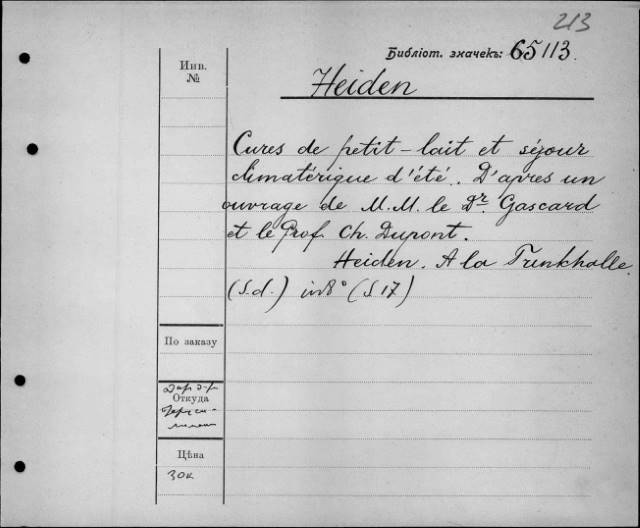 213
Библіот. значекъ: 65113.
Инв.
№
Heiden
Cures de petit-lait et séjour
climatérique d'été. D'après un
ouvrage de M.M. le Dr. Gascard
et le Prof Ch. Dupont.
Heiden. A la Trinkhalle.
(S.d.) in 8° (S 17)
По заказу
Дар д-ра
Откуда
Цѣна
30к